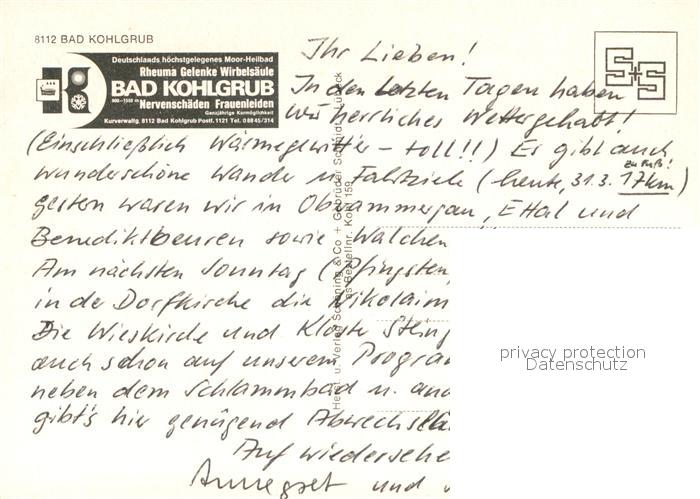 8112 BAD KOHLGRUB
Deutschlands höchstgelegenes Moor-Heilbad
Rheuma Gelenke Wirbelsäule
BAD KOHLGRUB
900–1500 m Nervenschäden Frauenleiden
Ganzjährige Kurmöglichkeit
Kurverwaltg. 8112 Bad Kohlgrub Postf. 1121 Tel. 08845/314
S+S
Ihr Lieben!
In den letzten Tagen haben
wir herrliches Wetter gehabt!
(Einschließlich Wärmegewitter – toll!!) Er gibt auch
zu Fuß!
wunderschöne Wander u. Fahrziele (heute, 31.3. 17km)
gestern waren wir in Oberammergau, Ettal und
Benediktbeuren sowie Walchen
Am nächsten Sonntag (Pfingsten,
in der Dorfkirche die Nikolaim
Die Wieskirche und Kloster Steing
auch schon auf unserem Program
neben dem Schlammbad u. and
gibt's hier genügend Abwechslu
Auf wiedersehe
Annegret und
Herst. u. Verlag Schöning & Co + Gebrüder Schmidt
as Bestellnr. Koh 159
privacy protection
Datenschutz